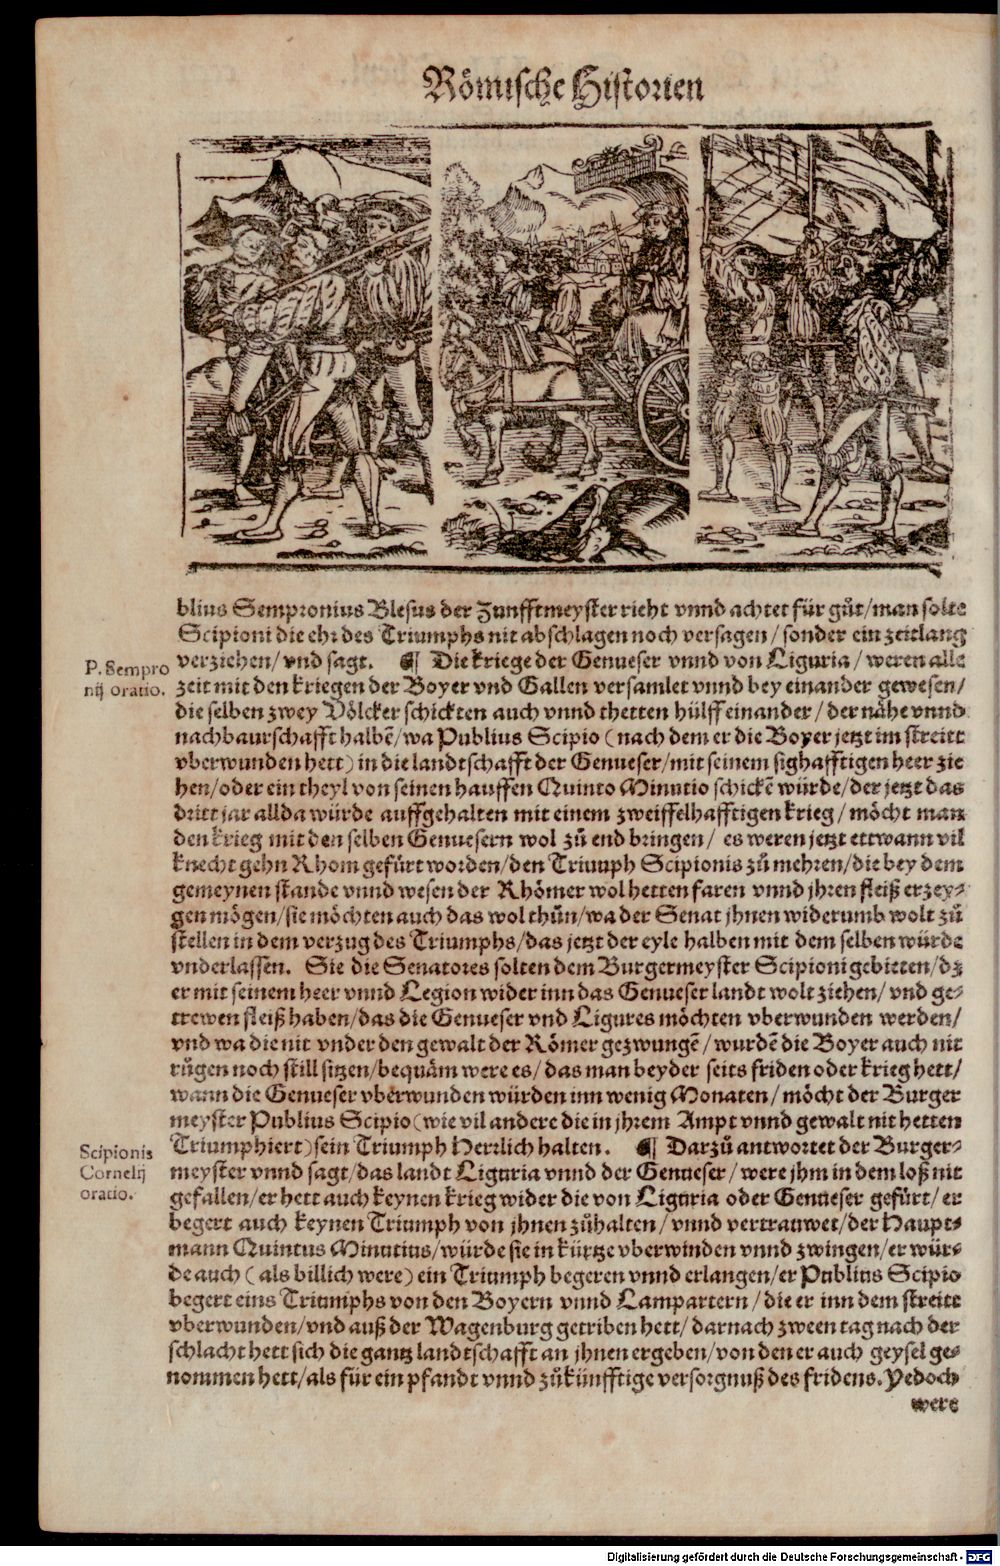 Römische Historien
blius Sempronius Blesus der Zunfftmeyster rieht vnnd achtet für gůt/man solte
Scipioni die ehr des Triumphs nit abschlagen noch versagen/sonder ein zeitlang
P. Sempro
nij oratio.
verziehen/vnd sagt. ¶ Die kriege der Genueser vnnd von Liguria/weren alle
zeit mit den kriegen der Boyer vnd Gallen versamlet vnnd bey einander gewesen/
die selben zwey Völcker schickten auch vnnd thetten hülff einander/der nåhe vnnd
nachbaurschafft halbē/wa Publius Scipio (nach dem er die Boyer jetzt im streitt
vberwunden hett) in die landtschafft der Genueser/mit seinem sighafftigen heer zie
hen/oder ein theyl von seinen hauffen Quinto Minutio schickē würde/der jetzt das
dritt jar allda würde auffgehalten mit einem zweiffelhafftigen krieg/möcht man
den krieg mit den selben Genuesern wol zů end bringen/ es weren jetzt ettwann vil
knecht gehn Rhom gefürt worden/den Triumph Scipionis zů mehren/die bey dem
gemeynen stande vnnd wesen der Rhömer wol hetten faren vnnd jhren fleiß erzey-
gen mögen/sie möchten auch das wol thůn/wa der Senat jhnen widerumb wolt zů
stellen in dem verzug des Triumphs/das jetzt der eyle halben mit dem selben würde
vnderlassen. Sie die Senatores solten dem Burgermeyster Scipioni gebieten/dz
er mit seinem heer vnnd Legion wider inn das Genueser landt wolt ziehen/ vnd ge-
trewen fleiß haben/das die Genueser vnd Ligures möchten vberwunden werden/
vnd wa die nit vnder den gewalt der Römer gezwungē/wurdē die Boyer auch nit
růgen noch still sitzen/bequåm were es/das man beyder seits friden oder krieg hett/
wann die Genueser vberwunden würden inn wenig Monaten/möcht der Burger
meyster Publius Scipio (wie vil andere die in jhrem Ampt vnnd gewalt nit hetten
Triumphiert) sein Triumph Herrlich halten. ¶ Darzů antwortet der Burger-
Scipionis
Cornelij
oratio.
meyster vnnd sagt/das landt Liguria vnnd der Genueser/were jhm in dem loß nit
gefallen/er hett auch keynen krieg wider die von Liguria oder Genueser gefürt/er
begert auch keynen Triumph von jhnen zůhalten/vnnd vertrauwet/der Haupt-
mann Quintus Minutius/würde sie in kürtze vberwinden vnnd zwingen/er wür-
de auch (als billich were) ein Triumph begeren vnnd erlangen/er Publius Scipio
begert eins Triumphs von den Boyern vnnd Lampartern/die er inn dem streitt
vberwunden/vnd auß der Wagenburg getriben hett/darnach zween tag nach der
schlacht hett sich die gantz landtschafft an jhnen ergeben/von den er auch geysel ge-
nommen hett/als für ein pfandt vnnd zůkünfftige versorgnuß des fridens. Yedoch
were
Digitalisierung gefördert durch die Deutsche Forschungsgemeinschaft - DFG